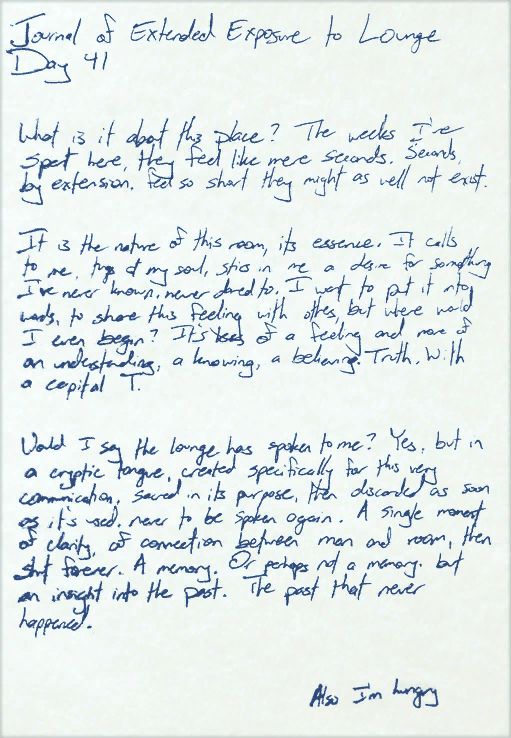 Journal of Extended Exposure to Lounge
Day 41
What is it about this place? The weeks I've
spent here, they feel like mere seconds. Seconds,
by extension, feel so short they might as well not exist.
It is the nature of this room, its essence. It calls
to me, tugs at my soul, stirs in me a desire for something
I've never known, never dared to. I want to put it into
words, to share this feeling with others, but where would
I even begin? It's less of a feeling and more of
an understanding, a knowing, a believing. Truth. With
a capital T.
Would I say the lounge has spoken to me? Yes, but in
a cryptic tongue, created specifically for this very
communication, sacred in its purpose, then discarded as soon
as it's used, never to be spoken again. A single moment
of clarity, of connection between man and room, then
shut forever. A memory. Or perhaps not a memory, but
an insight into the past. The past that never
happened.
Also I'm hungry